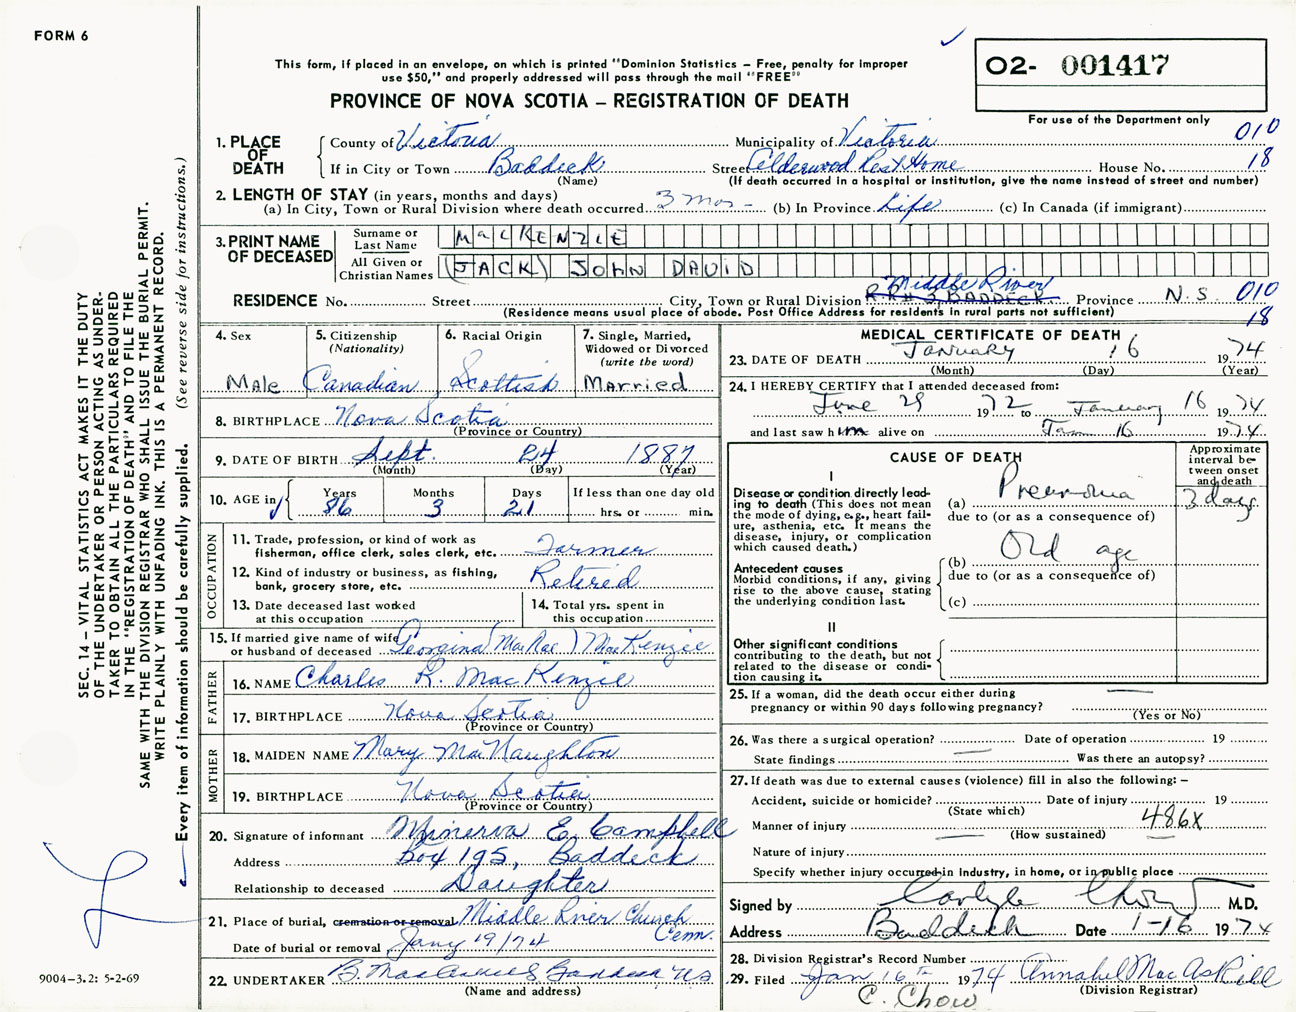 FORM 6
This form, if placed in an envelope, on which is printed "Dominion Statistics – Free, penalty for improper
use $50," and properly addressed will pass through the mail "FREE"
PROVINCE OF NOVA SCOTIA – REGISTRATION OF DEATH
O2- 001417
For use of the Department only
010
18
1. PLACE OF DEATH
County of Victoria Municipality of Victoria
If in City or Town Baddeck Street Alderwood Rest Home House No.
(Name) (If death occurred in a hospital or institution, give the name instead of street and number)
2. LENGTH OF STAY (in years, months and days)
(a) In City, Town or Rural Division where death occurred 3 mos - (b) In Province Life (c) In Canada (if immigrant)
3. PRINT NAME OF DECEASED
Surname or Last Name MacKENZIE
All Given or Christian Names (JACK) JOHN DAVID
Middle River
RESIDENCE No. Street City, Town or Rural Division R.R# 3 BADDECK Province N.S. 010
(Residence means usual place of abode. Post Office Address for residents in rural parts not sufficient) 18
4. Sex Male
5. Citizenship (Nationality) Canadian
6. Racial Origin Scottish
7. Single, Married, Widowed or Divorced (write the word) Married
8. BIRTHPLACE Nova Scotia
(Province or Country)
9. DATE OF BIRTH Sept. 24 1887
(Month) (Day) (Year)
10. AGE in Years 86 Months 3 Days 21 If less than one day old hrs. or min.
OCCUPATION
11. Trade, profession, or kind of work as
fisherman, office clerk, sales clerk, etc. Farmer
12. Kind of industry or business, as fishing,
bank, grocery store, etc. Retired
13. Date deceased last worked
at this occupation
14. Total yrs. spent in
this occupation
15. If married give name of wife
or husband of deceased Georgina (MacRae) MacKenzie
FATHER
16. NAME Charles R. MacKenzie
17. BIRTHPLACE Nova Scotia
(Province or Country)
MOTHER
18. MAIDEN NAME Mary MacNaughton
19. BIRTHPLACE Nova Scotia
(Province or Country)
20. Signature of informant Minerva E. Campbell
Address Box 195, Baddeck
Relationship to deceased Daughter
21. Place of burial, cremation or removal Middle River Church
Cem.
Date of burial or removal Jany 19/74
22. UNDERTAKER B. MacAskill Baddeck NS
(Name and address)
MEDICAL CERTIFICATE OF DEATH
23. DATE OF DEATH January 16 1974
(Month) (Day) (Year)
24. I HEREBY CERTIFY that I attended deceased from:
June 29 1972 to January 16 1974
and last saw him alive on Jan 16 1974.
CAUSE OF DEATH
Approximate interval between onset and death
I
Disease or condition directly lead-
ing to death (This does not mean
the mode of dying, e.g., heart fail-
ure, asthenia, etc. It means the
disease, injury, or complication
which caused death.)
(a) Pneumonia 3 days
due to (or as a consequence of)
Antecedent causes
Morbid conditions, if any, giving
rise to the above cause, stating
the underlying condition last.
(b) Old age
due to (or as a consequence of)
(c)
II
Other significant conditions
contributing to the death, but not
related to the disease or condi-
tion causing it.
25. If a woman, did the death occur either during
pregnancy or within 90 days following pregnancy?
(Yes or No)
26. Was there a surgical operation? Date of operation 19
State findings Was there an autopsy?
27. If death was due to external causes (violence) fill in also the following: –
Accident, suicide or homicide? Date of injury 19
(State which)
Manner of injury 486X
(How sustained)
Nature of injury
Specify whether injury occurred in industry, in home, or in public place
Signed by Carlyle Chow M.D.
Address Baddeck Date 1-16 1974
28. Division Registrar's Record Number
29. Filed Jan 16th 1974 Annabel MacAskill
(Division Registrar)
C. Chow
SEC. 14 – VITAL STATISTICS ACT MAKES IT THE DUTY
OF THE UNDERTAKER OR PERSON ACTING AS UNDER-
TAKER TO OBTAIN ALL THE PARTICULARS REQUIRED
IN THE "REGISTRATION OF DEATH" AND TO FILE THE
SAME WITH THE DIVISION REGISTRAR WHO SHALL ISSUE THE BURIAL PERMIT.
WRITE PLAINLY WITH UNFADING INK. THIS IS A PERMANENT RECORD.
Every item of information should be carefully supplied. (See reverse side for instructions.)
9004–3.2: 5-2-69